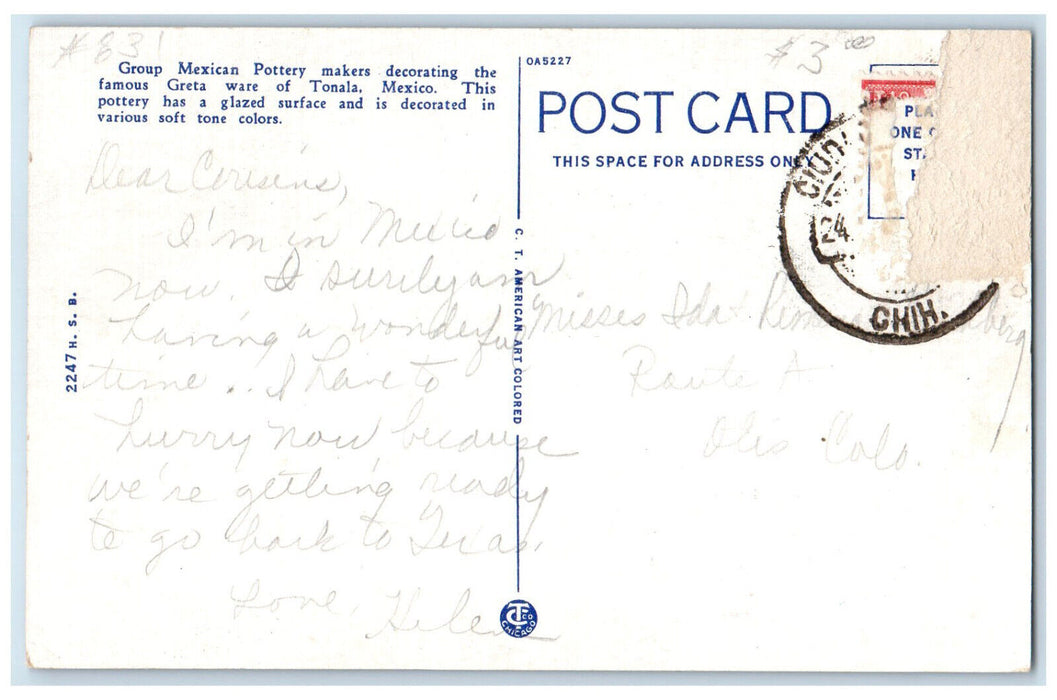 #831
$3.00
Group Mexican Pottery makers decorating the
famous Greta ware of Tonala, Mexico. This
pottery has a glazed surface and is decorated in
various soft tone colors.
Dear Cousins,
I'm in Mexico
now. I surely am
having a wonderful
time.. I have to
hurry now because
we're getting ready
to go back to Texas.
Love, Helen
2247 H. S. B.
C. T. AMERICAN ART COLORED
C T Co CHICAGO
OA5227
POST CARD
THIS SPACE FOR ADDRESS ONLY
PLA
ONE
STA
CIUD
24
CHIH.
Misses Ida
Route A
Otis Colo.